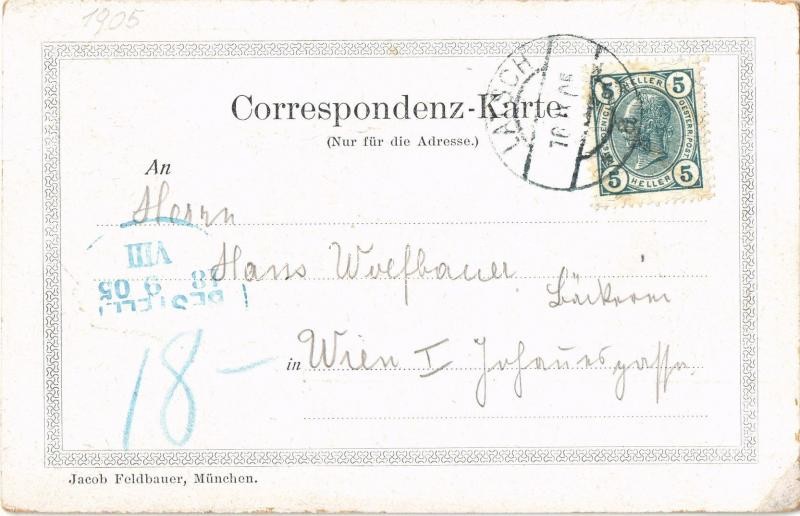 1905
Correspondenz-Karte.
(Nur für die Adresse.)
LATSCH
5 HELLER 5
5 HELLER 5
An
Herrn
Hans Wolfbauer
Bäckerei
in Wien I Johannesgasse
BESTELLT
18 9 05
VIII
18 –
Jacob Feldbauer, München.